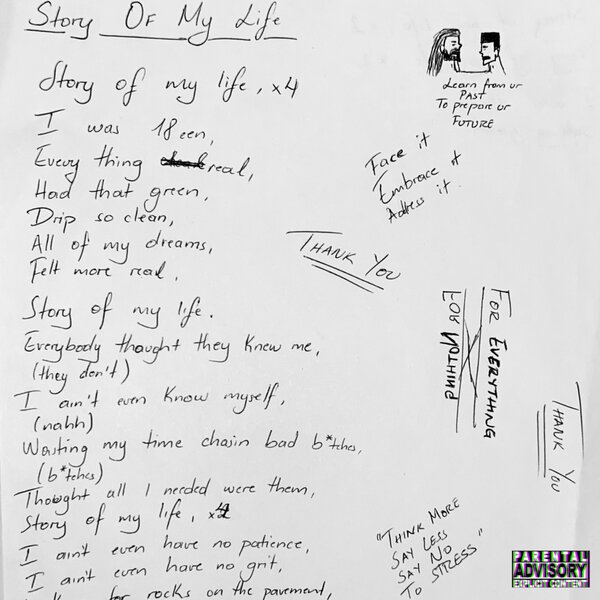 Story Of My Life
Story of my life, x4
I was 18een,
Every thing real,
Had that green,
Drip so clean,
All of my dreams,
Felt more real,
Story of my life.
Everybody thought they knew me,
(they don't)
I ain't even know myself,
(nahh)
Wasting my time chasin bad b*tches,
(b*tches)
Thought all I needed were them,
Story of my life,
I ain't even have no patience,
I ain't even have no grit,
for rocks on the pavement,
Learn from ur
PAST
To prepare ur
FUTURE
Face it
Embrace it
Address it.
THANK YOU
FOR EVERYTHING
FOR NOTHING
THANK YOU
"THINK MORE
SAY LESS
SAY NO
TO STRESS"
PARENTAL
ADVISORY
EXPLICIT CONTENT